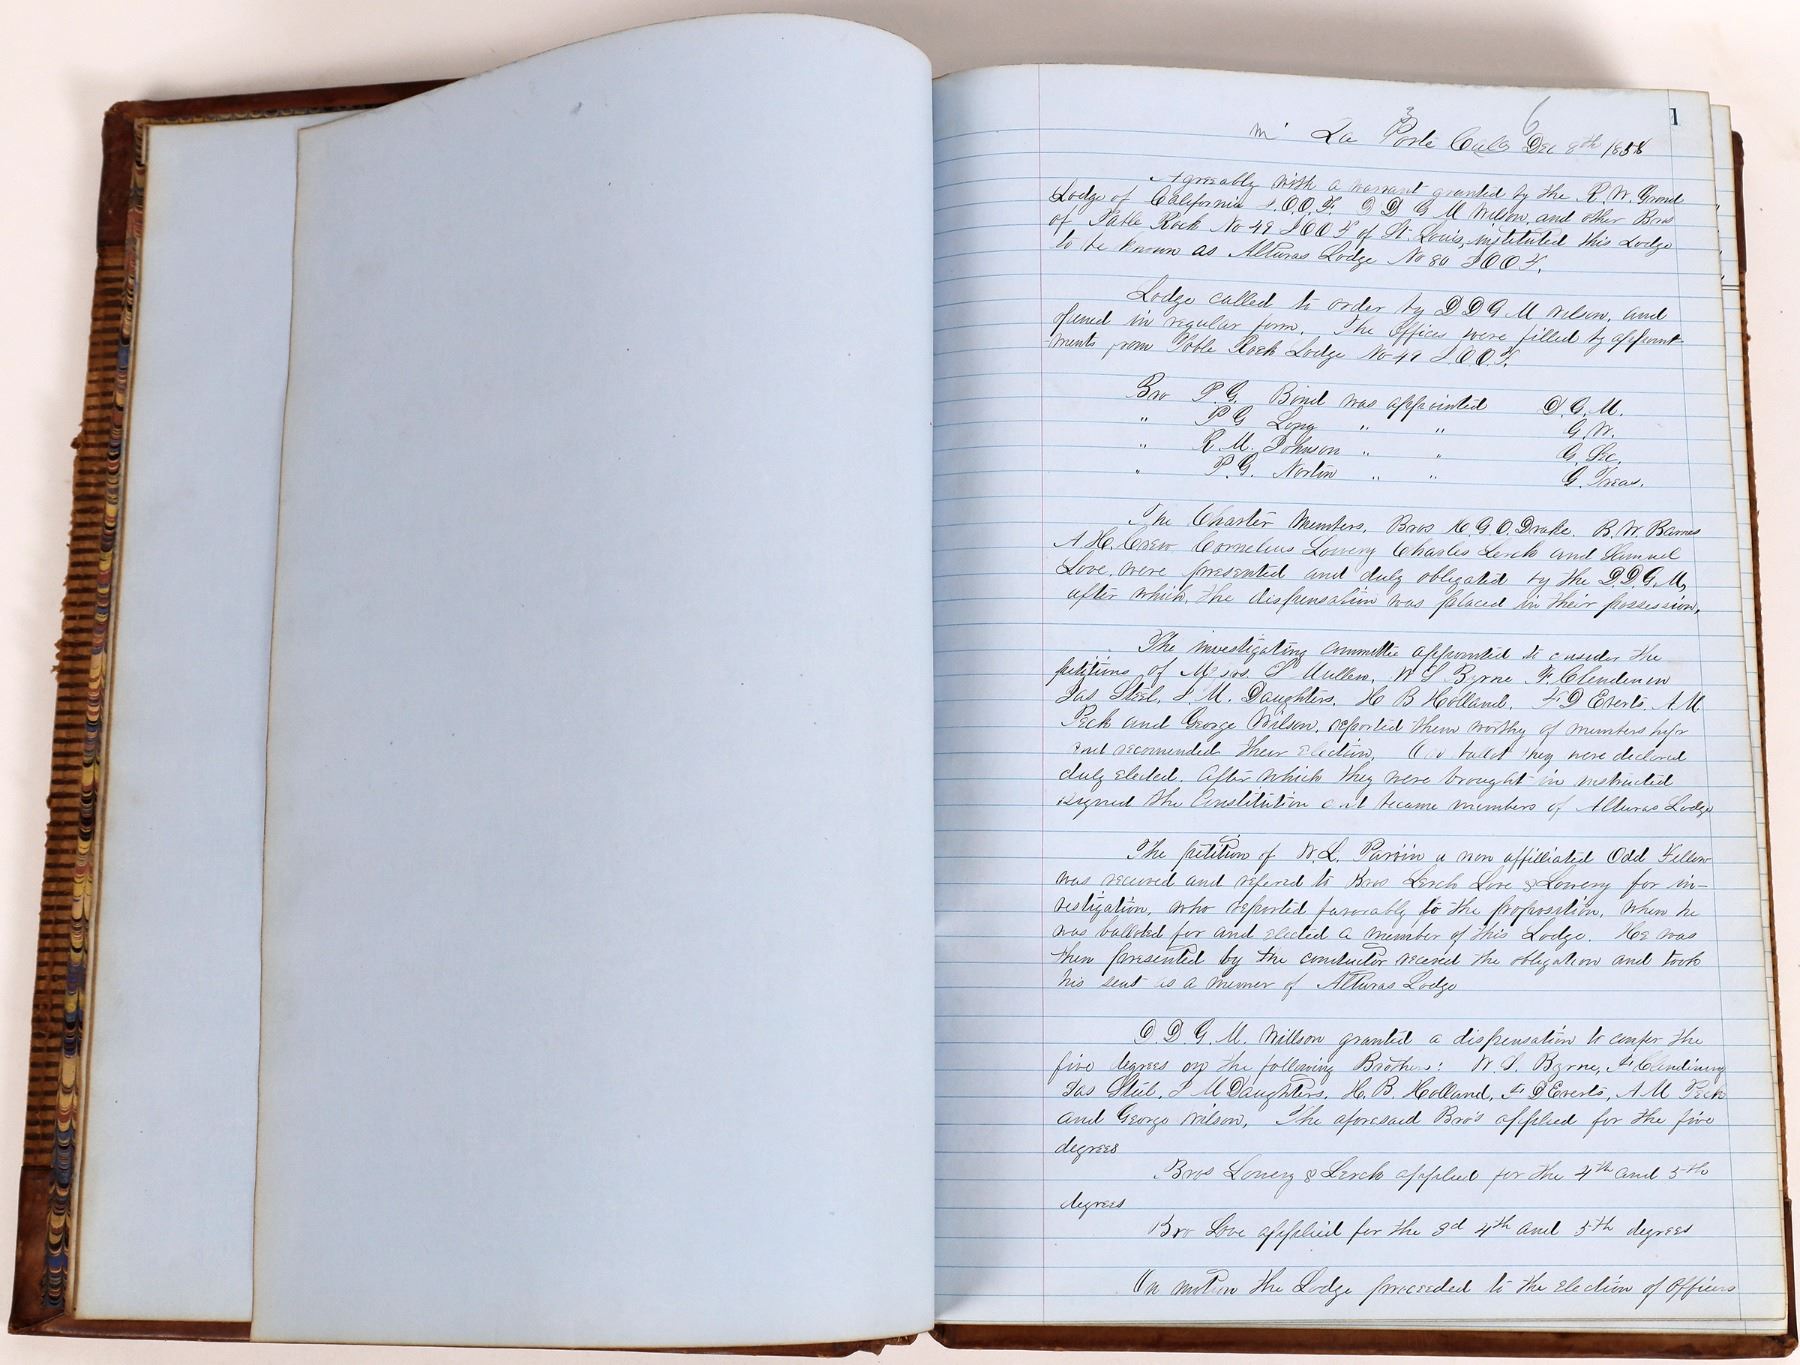 1
6
La Porte Cala Dec 8th 1858
Agreeably with a warrant granted by the R. W. Grand
Lodge of California I.O.O.F. D D G M Wilson and other Bros
of Table Rock No 49 I O O F of St. Louis, instituted this Lodge
to be known as Alturas Lodge No 80 I O O F.
Lodge called to order by D D G M Wilson, and
opened in regular form. The Offices were filled by appoint-
ments from Table Rock Lodge No 49 I.O.O.F.
Bro P. G. Bond was appointed D. G. M.
" P G Long " " G. W.
" R. M. Johnson " " G. Sec.
" P. G. Norton " " G. Treas.
The Charter Members, Bros H. G. O. Drake. B. W. Barnes
A. H. Crew Cornelius Lowery Charles Lerch and Samuel
Love, were presented and duly obligated by the D.D.G.M,
after which, the dispensation was placed in their possession.
The investigating committee appointed to consider the
petitions of Messrs. Mullen, W S Byrne F. Clendenin
Jas Steel, I. M. Daughters, H B Holland, F D Everts, A. M
Peck and George Wilson, reported them worthy of membership
and recomended their election, ballot they were declared
duly elected. After which they were brought in instructed
signed the Constitution and became members of Alturas Lodge
The petition of W. L. Parvin a non affilliated Odd Fellow
was received and refered to Bros Lerch Love & Lowery for in-
vestigation, who reported favorably to the proposition, when he
was balloted for and elected a member of this Lodge. He was
then presented by the conductor received the obligation and took
his seat as a memer of Alturas Lodge
D. D G. M. Willson granted a dispensation to confer the
five degrees on the following Brothers: W. S. Byrne, F. Clendining
Jas Steel. I M Daughters. H. B. Holland, F. D Everts, A M Peck
and George Wilson, The aforesaid Bro's applied for the five
degrees
Bros Lowery & Lerch applied for the 4th and 5th
degrees
Bro Love applied for the 3d 4th and 5th degrees
On motion the Lodge proceeded to the Election of Officers